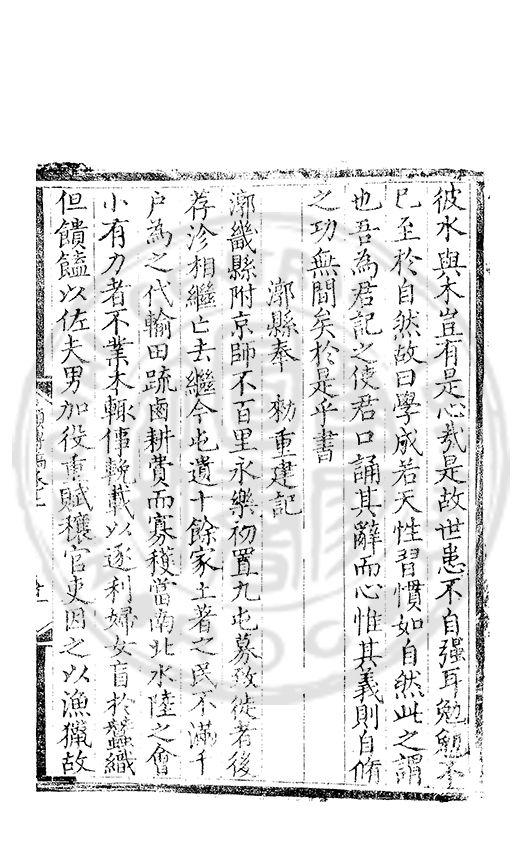 彼水與木豈有是心哉是故世患不自強耳勉勉不
已至於自然故曰學成若天性習慣如自然此之謂
也吾為君記之使君口誦其辭而心惟其義則自脩
之功無間矣於是乎書
漷縣奉 勑重建記
漷畿縣附京師不百里永樂初置九屯募致徙者後
荐沴相繼亡去繼今屯遺十餘家土著之民不滿千
戶為之代輸田䟽鹵耕費而寡穫當南北水陸之會
小有力者不業末輙俥輓載以逐利婦女盲於蠶織
但饋饁以佐夫男加役重賦穰官吏因之以漁獵故